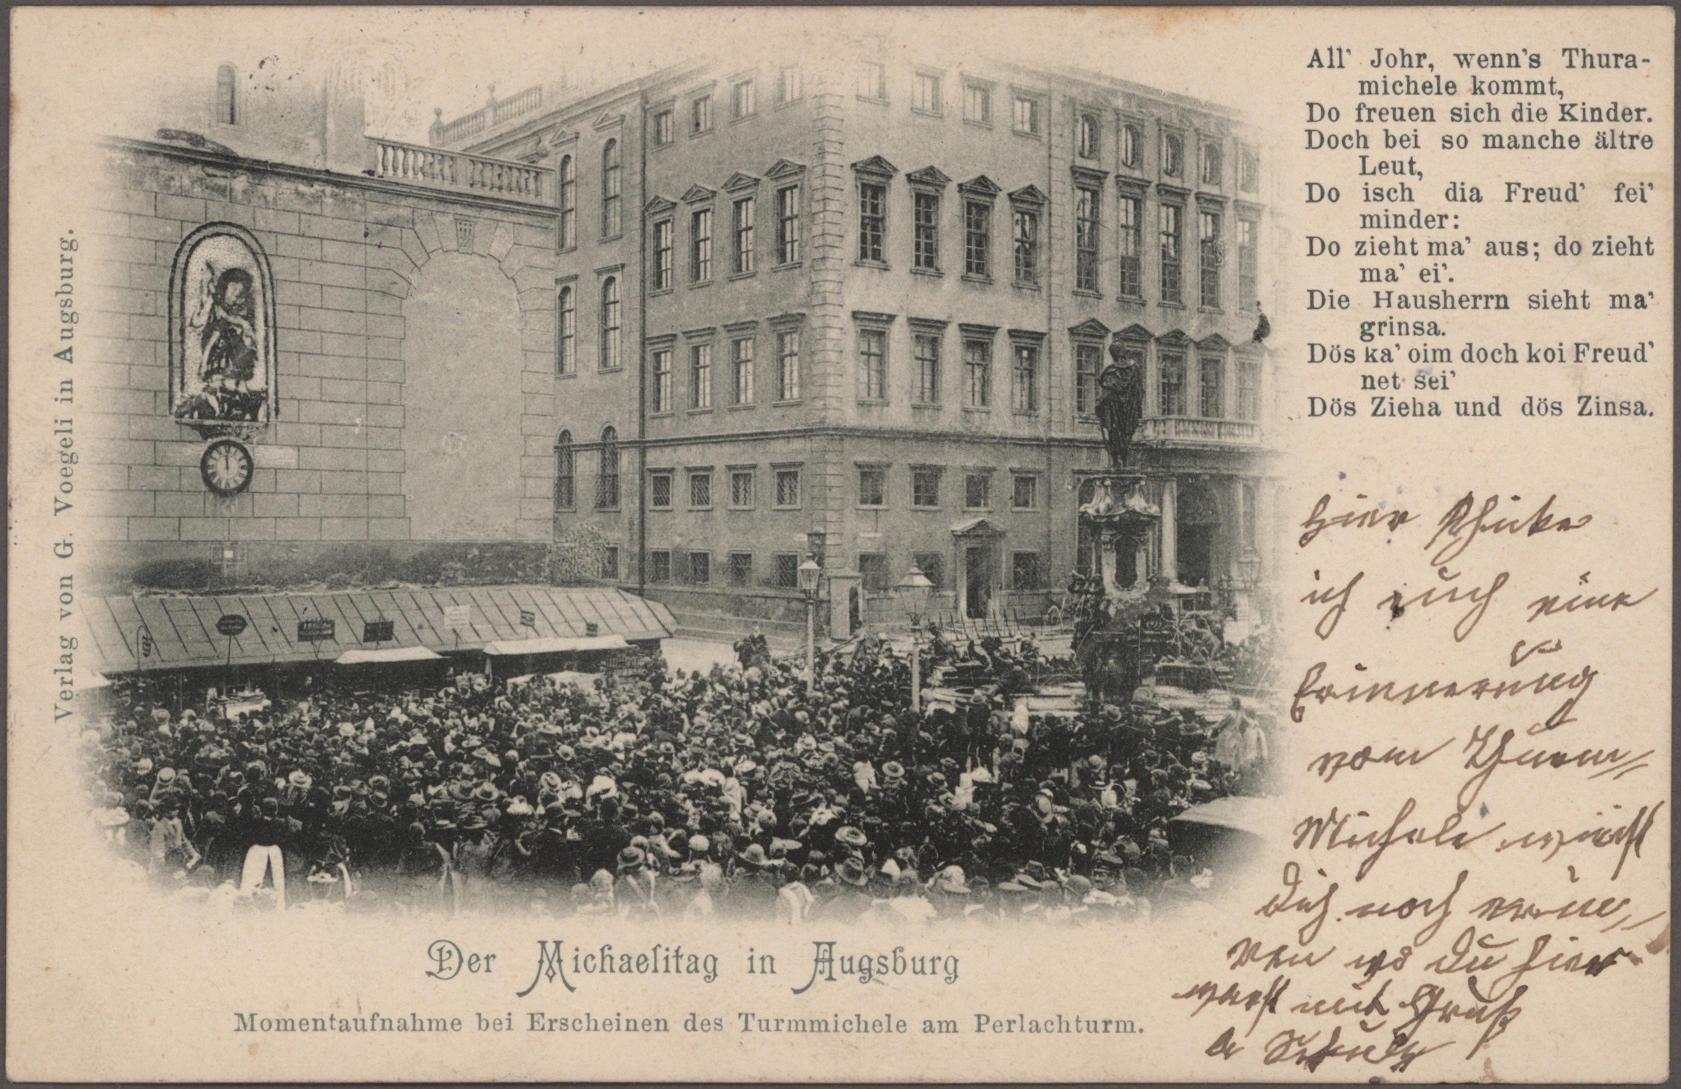 All' Johr, wenn's Thura-
michele kommt,
Do freuen sich die Kinder.
Doch bei so manche ältre
Leut,
Do isch dia Freud' fei'
minder:
Do zieht ma' aus; do zieht
ma' ei'.
Die Hausherrn sieht ma'
grinsa.
Dös ka' oim doch koi Freud'
net sei'
Dös Zieha und dös Zinsa.
Hier schicke
ich auch eine
Erinnerung
vom Thurm-
Michele wirst
Dich noch erine-
ren wo Du hier
warst mit Gruß
Verlag von G. Voegeli in Augsburg.
Der Michaelitag in Augsburg
Momentaufnahme bei Erscheinen des Turmmichele am Perlachturm.